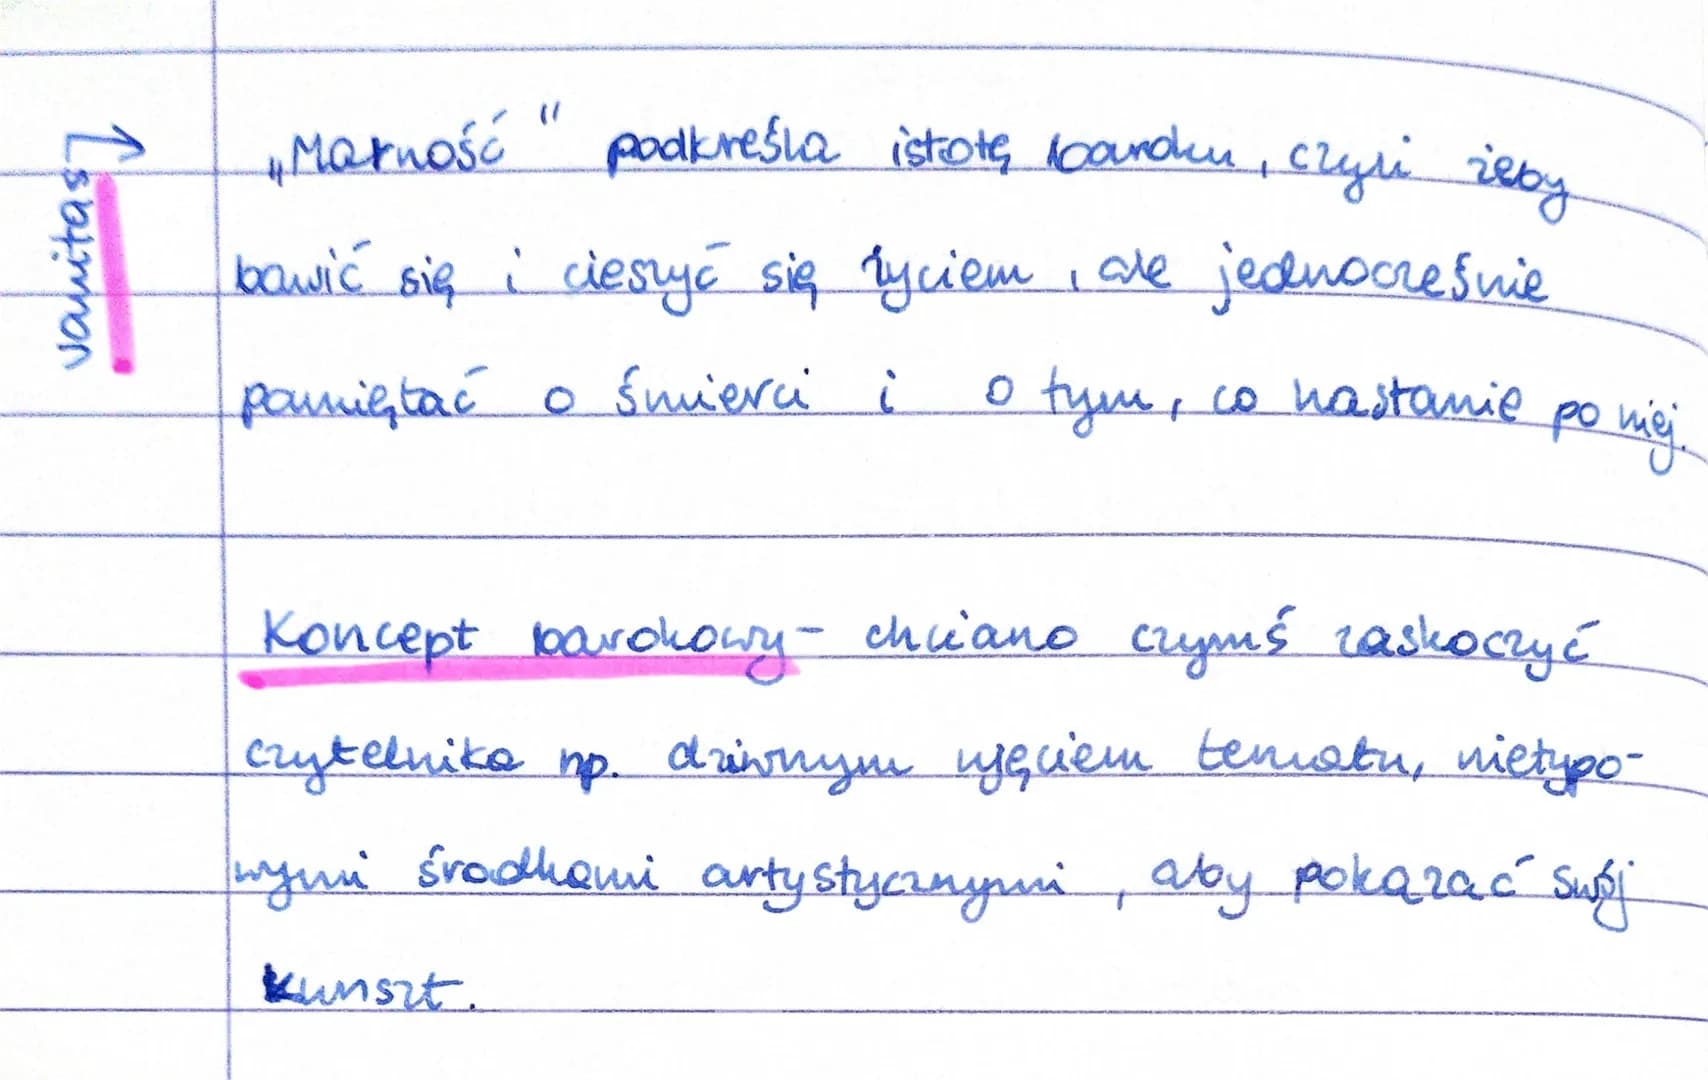 vanitas
„Marność" podkreśla istotę baroku, czyli żeby
bawić się i cieszyć się życiem, ale jednocześnie
pamiętać o śmierci i o tym, co nastanie po niej.
Koncept barokowy - chciano czymś zaskoczyć
czytelnika np. dziwnym ujęciem tematu, nietypo-
wymi środkami artystycznymi, aby pokazać swój
kunszt.